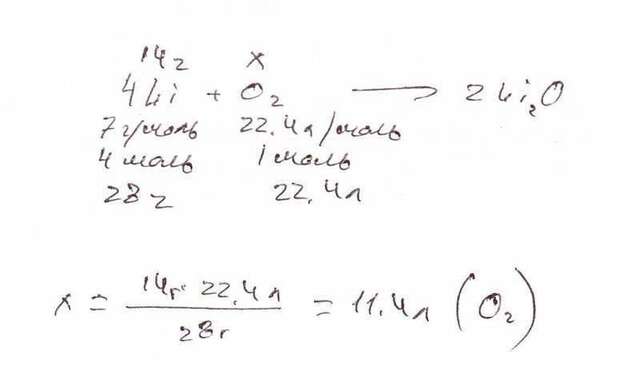 14г x
4Li + O₂ ⟶ 2Li₂O
7г/моль 22.4л/моль
4 моль 1 моль
28г 22,4л
x = 14г · 22,4л / 28г = 11.4л (O₂)